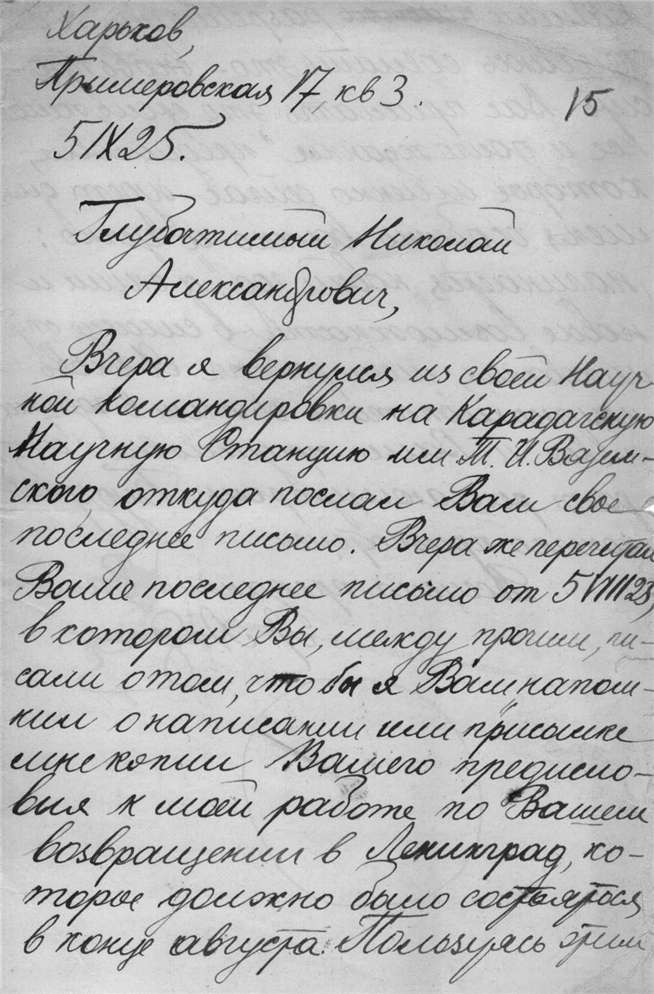 Харьков,
Примеровская 17 кв 3.
15
5 IX 25.
Глубочтимый Николай
Александрович,
Вчера я вернулся из своей Науч-
ной командировки на Карадагскую
Научную Станцию им Т. И. Вязем-
ского, откуда послал Вам свое
последнее письмо. Вчера же перечитал
Ваше последнее письмо от 5 VIII 25,
в котором Вы, между прочим, пи-
сали о том, чтобы я Вам напом-
нил о написании или присылке
мне копии Вашего предисло-
вия к моей работе по Вашем
возвращении в Ленинград, ко-
торое должно было состояться
в конце августа. Пользуясь этим